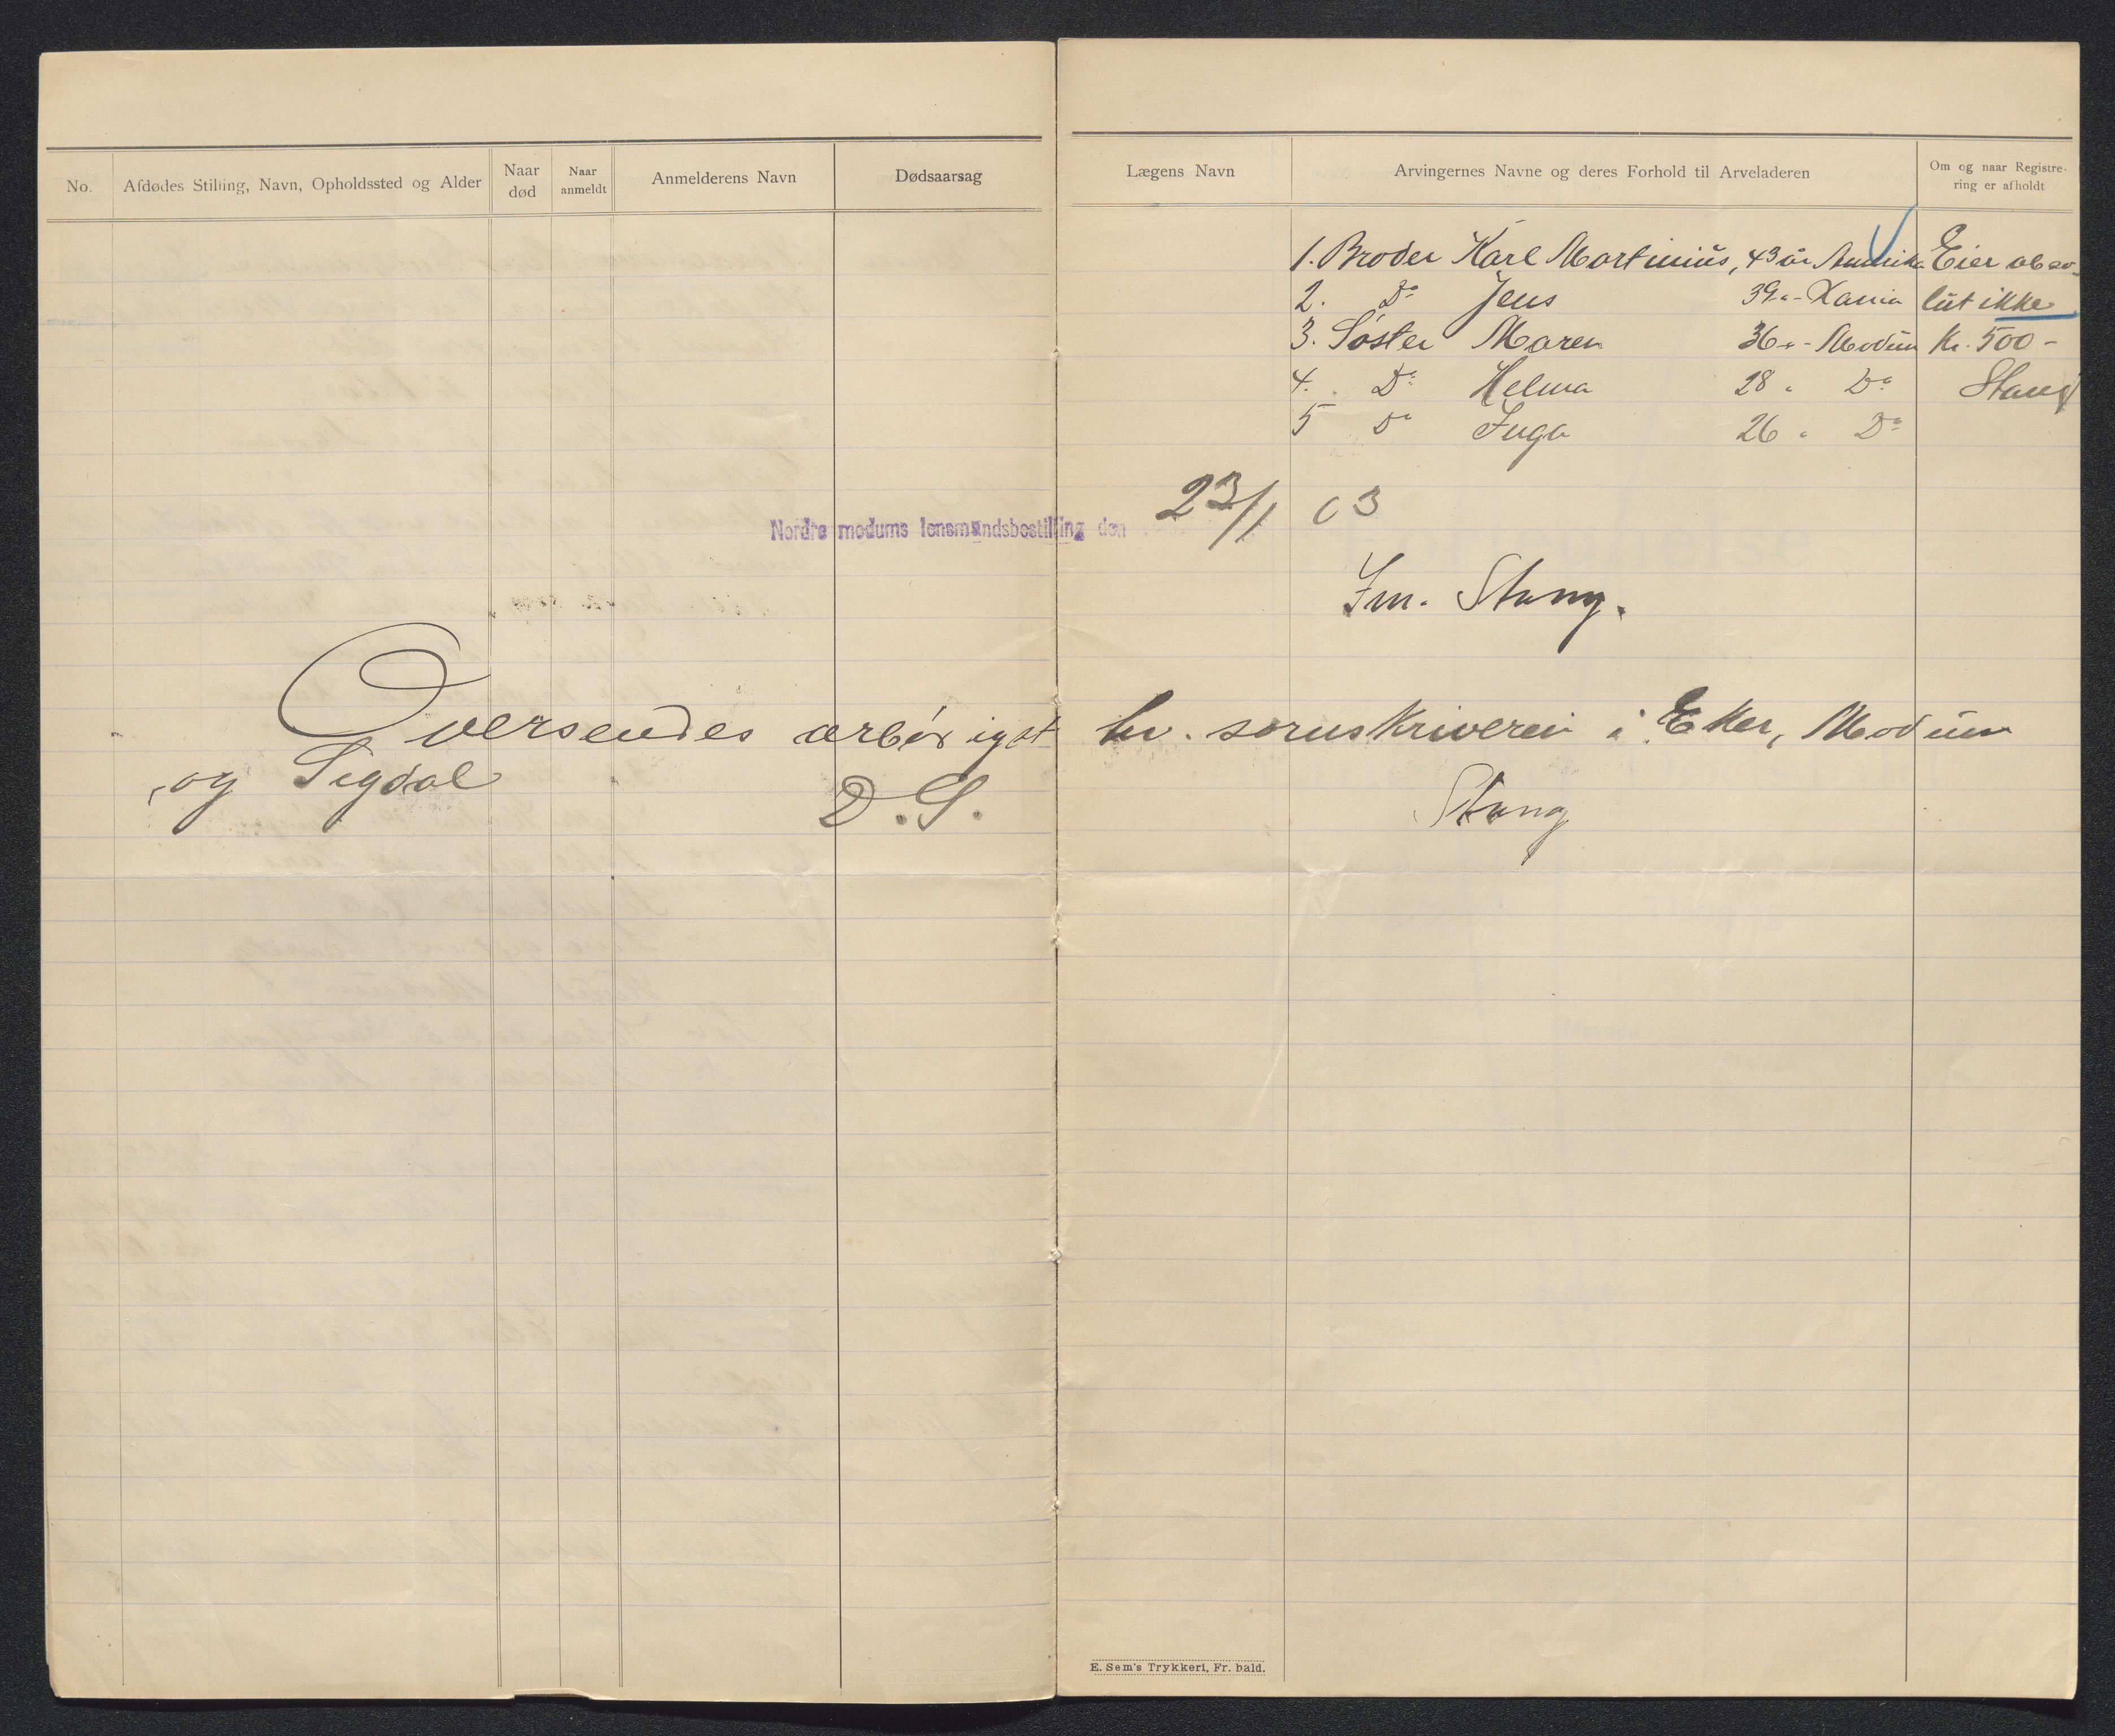 No.
Afdødes Stilling, Navn, Opholdssted og Alder
Naar død
Naar anmeldt
Anmelderens Navn
Dødsaarsag
Lægens Navn
Arvingernes Navne og deres Forhold til Arveladeren
Om og naar Registre-
ring er afholdt
1. Broder Karl Martinius, 43 år Amerika Eier abso-
2. Do Jens 39 " - Xania lut ikke
3. Søster Maren 36 " - Modum Kr. 500 -
4. Do Helma 28 " Do Stang
5 Do Inga 26 " Do
Nordre modums lensmandsbestilling den 23/1 03
Fm. Stang.
Oversendes ærbødigst hr. sorenskriveren i Eker, Modum
og Sigdal
D. S. Stang
E. Sem's Trykkeri, Fr. hald.